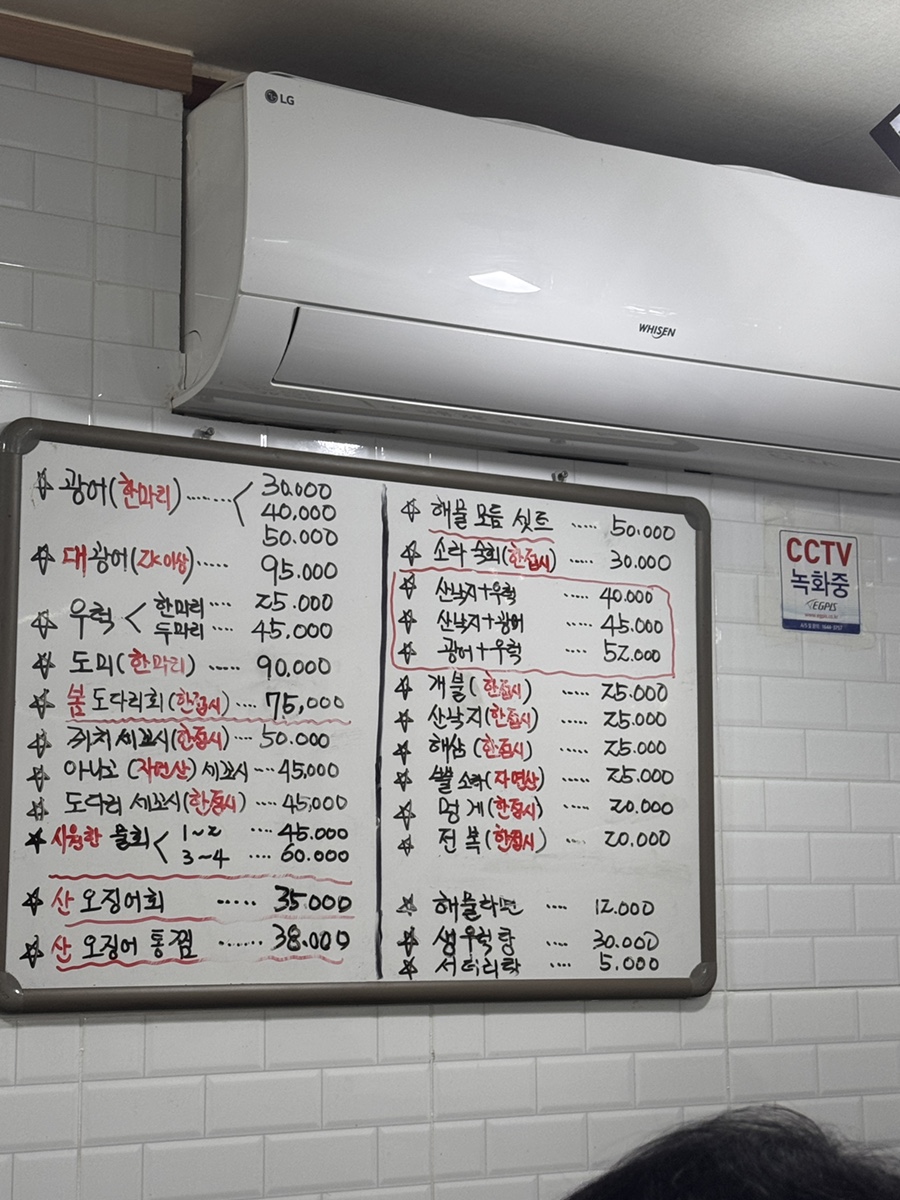 LG
WHISEN
☆ 광어(한마리) ...... < 30.000
40,000
50.000
☆ 대광어(2K이상)..... 95.000
☆ 우럭 < 한마리 .... 25.000
두마리 .... 45.000
☆ 도미(한마리) ..... 90.000
☆ 봄 도다리회(한접시) .... 75,000
☆ 쥐치 세꼬시(한접시) .... 50.000
☆ 아나고 (자연산) 세꼬시 ... 45,000
☆ 도다리 세꼬시(한접시) .... 45,000
☆ 시원한 물회 < 1~2 .... 45.000
3~4 .... 60.000
☆ 산 오징어회 ..... 35.000
☆ 산 오징어 통찜 ...... 38.000
☆ 해물 모듬 셋트 ..... 50.000
☆ 소라 숙회(한접시) ..... 30.000
☆ 산낙지+우럭 ..... 40.000
☆ 산낙지+광어 .... 45.000
☆ 광어+우럭 .... 52.000
☆ 개불(한접시) ..... 25.000
☆ 산낙지(한접시) ..... 25.000
☆ 해삼(한접시) ..... 25.000
☆ 뿔소라(자연산) ..... 25.000
☆ 멍게(한접시) .... 20.000
☆ 전복(한접시) .... 20.000
☆ 해물라면 .... 12.000
☆ 생우럭탕 .... 30.000
☆ 서더리탕 .... 5.000
CCTV
녹화중
EGPIS